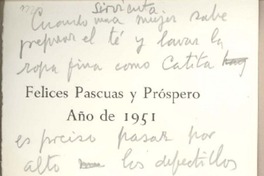 Sirvienta
Cuando una mujer sabe
preparar el té y lavar la
ropa fina como Catita hay
Felices Pascuas y Próspero
Año de 1951
es preciso pasar por
alto los defectillos